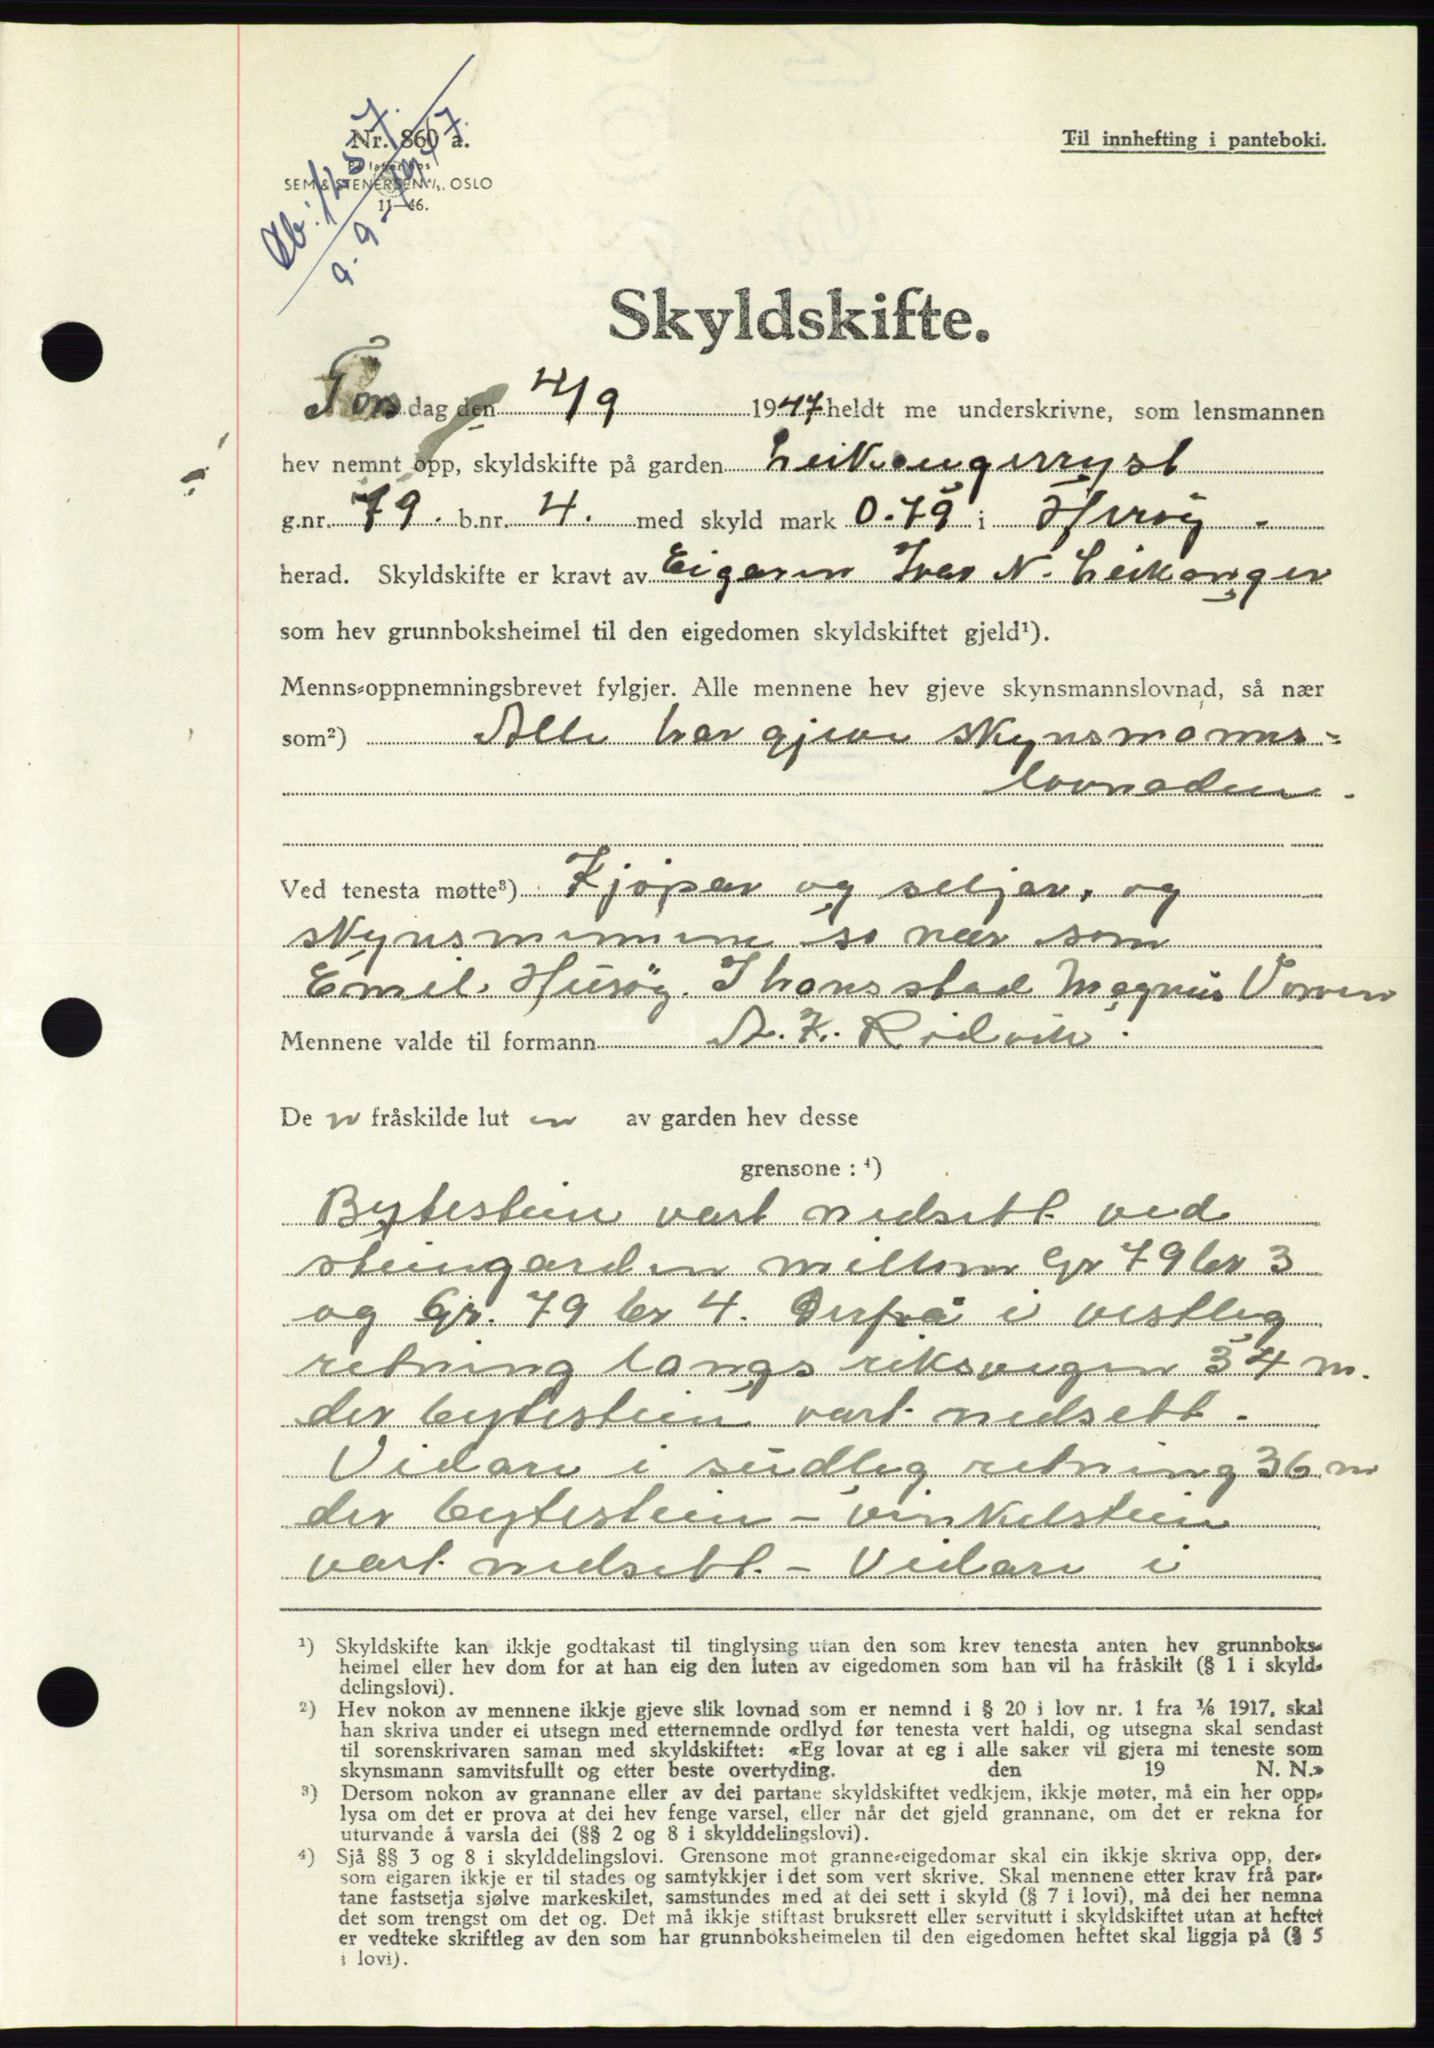 Db: 1257.
9.9-1947.
Nr. 860 a.
SEM & STENERSEN A/S, OSLO
11—46.
Til innhefting i panteboki.
Skyldskifte.
Tors dag den 4/9 1947 heldt me underskrivne, som lensmannen
hev nemnt opp, skyldskifte på garden Leikangerryst
g.nr. 79. b.nr. 4. med skyld mark 0.79 i Herøy.
herad. Skyldskifte er kravt av Eigaren Ivar N. Leikanger
som hev grunnboksheimel til den eigedomen skyldskiftet gjeld¹).
Menns-oppnemningsbrevet fylgjer. Alle mennene hev gjeve skynsmannslovnad, så nær
som²) Alle har gjeve skynsmanns-
lovnaden.
Ved tenesta møtte³) Kjøpar og seljar, og
skynsmennene so nær som
Emil. Husøy. I hans stad Magnus
Mennene valde til formann A. K. Rødvik.
De n fråskilde lut en av garden hev desse
grensone : ⁴)
Bytestein vart nedsett ved
steingarden millom Gr 79 br 3
og Gr. 79 br 4. Derfrå i vestleg
retning langs riksvegen 34 m.
der bytestein vart nedsett.
Vidare i sudleg retning 36 m
der bytestein – vinkelstein
vart nedsett. – Vidare i
¹) Skyldskifte kan ikkje godtakast til tinglysing utan den som krev tenesta anten hev grunnboks-
heimel eller hev dom for at han eig den luten av eigedomen som han vil ha fråskilt (§ 1 i skyld-
delingslovi).
²) Hev nokon av mennene ikkje gjeve slik lovnad som er nemnd i § 20 i lov nr. 1 fra ¹/₆ 1917, skal
han skriva under ei utsegn med etternemnde ordlyd før tenesta vert haldi, og utsegna skal sendast
til sorenskrivaren saman med skyldskiftet: «Eg lovar at eg i alle saker vil gjera mi teneste som
skynsmann samvitsfullt og etter beste overtyding. den 19 N. N.»
³) Dersom nokon av grannane eller av dei partane skyldskiftet vedkjem, ikkje møter, må ein her opp-
lysa om det er prova at dei hev fenge varsel, eller når det gjeld grannane, om det er rekna for
uturvande å varsla dei (§§ 2 og 8 i skylddelingslovi).
⁴) Sjå §§ 3 og 8 i skylddelingslovi. Grensone mot granne-eigedomar skal ein ikkje skriva opp, der-
som eigaren ikkje er til stades og samtykkjer i det som vert skrive. Skal mennene etter krav frå par-
tane fastsetja sjølve markeskilet, samstundes med at dei sett i skyld (§ 7 i lovi), må dei her nemna
det som trengst om det og. Det må ikkje stiftast bruksrett eller servitutt i skyldskiftet utan at heftet
er vedteke skriftleg av den som har grunnboksheimelen til den eigedomen heftet skal liggja på (§ 5
i lovi).